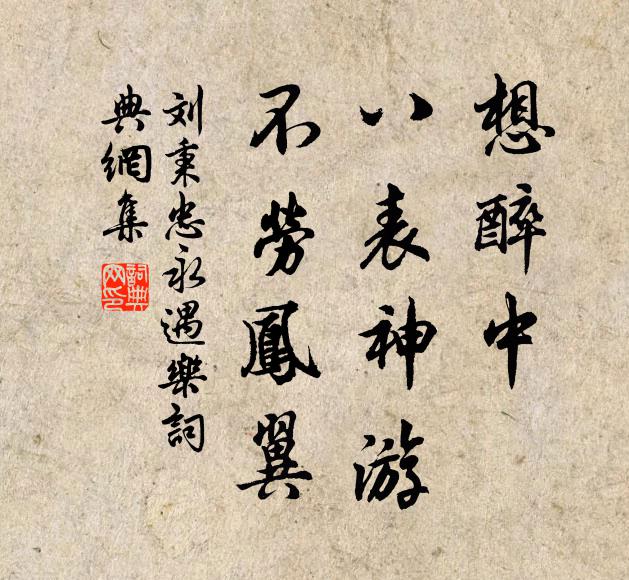 想醉中
八表神游
不勞鳳翼
刘秉忠永遇樂詞
典網集
詞典網印